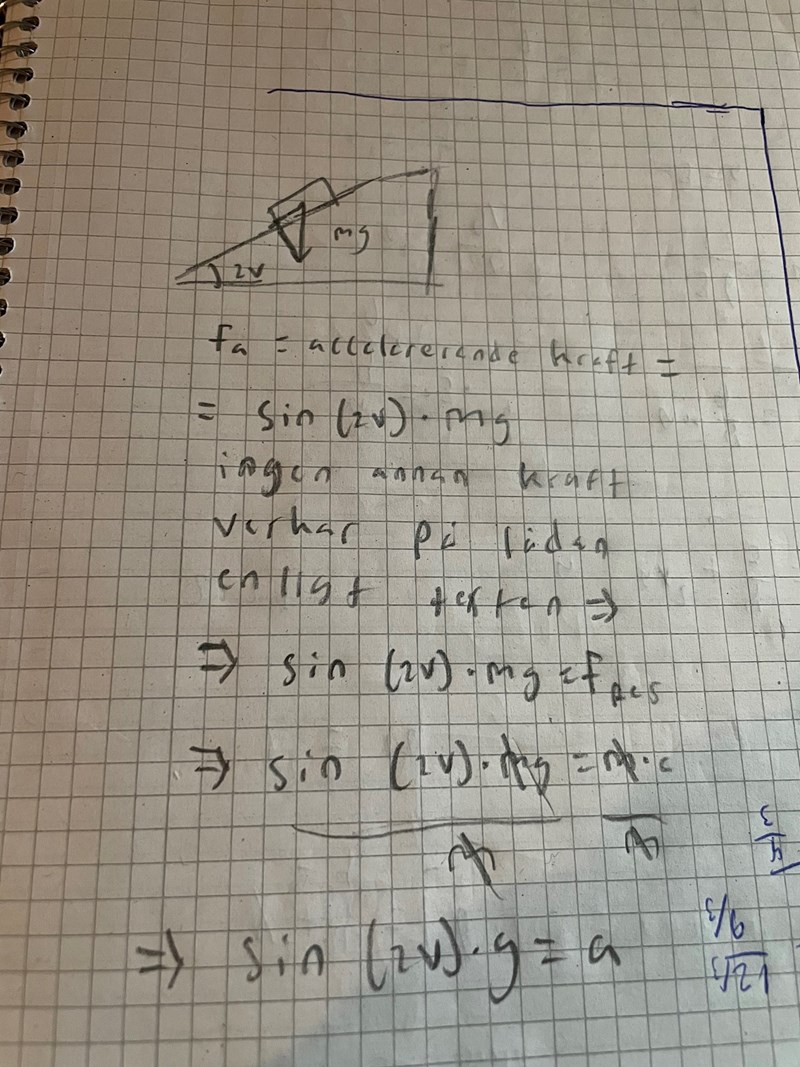 mg
2v
fa = accelererande kraft =
= sin (2v) · mg
ingen annan kraft
verkar på lådan
enligt texten ⇒
⇒ sin (2v) · mg = fres
⇒ sin (2v) · mg = m · a
m m
⇒ sin (2v) · g = a
4/3
9/3